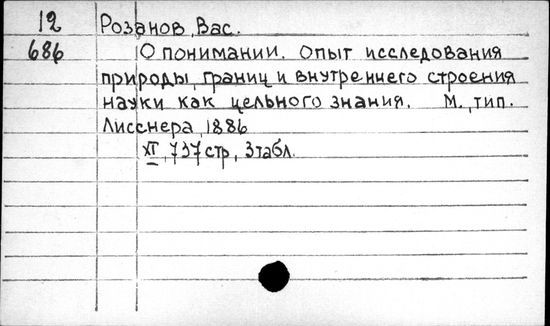 12 Розанов, Вас.
686 О понимании. Опыт исследования
природы, границ и внутреннего строения
науки как цельного знания. М., тип.
Лисснера, 1886
XI, 737 стр, 3 табл.